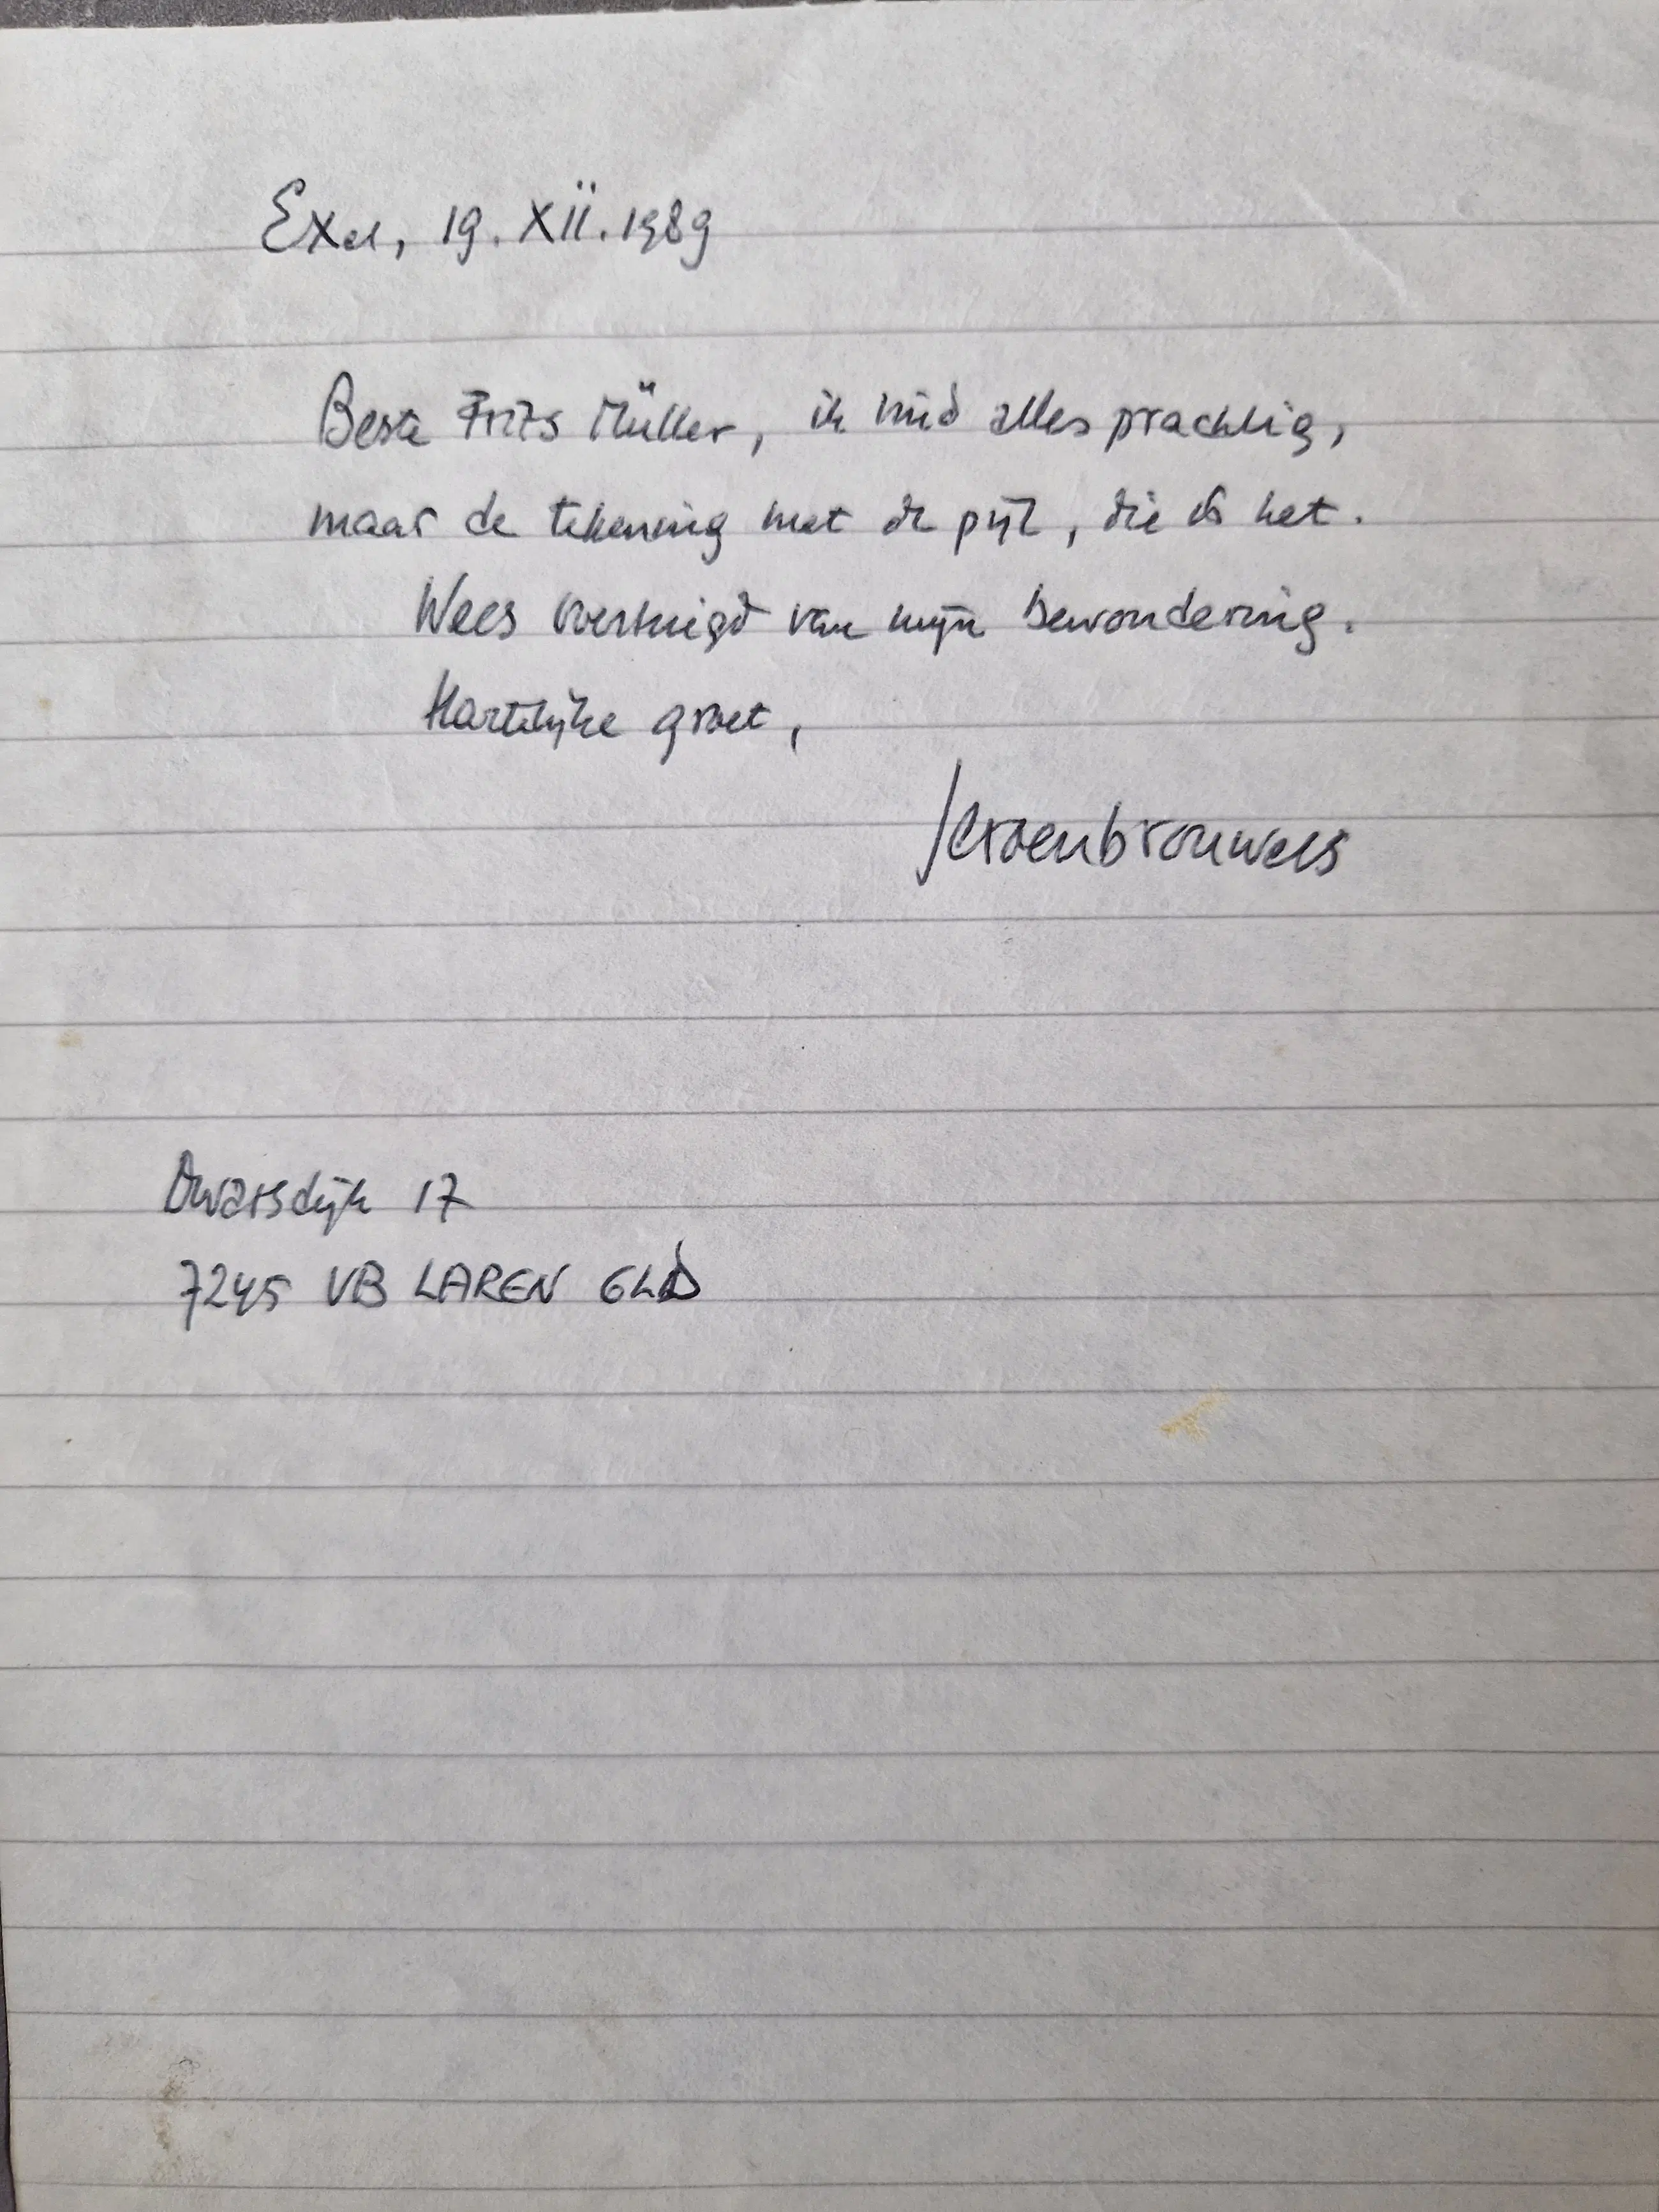 Exel, 19.XII.1989
Beste Frits Müller, ik vind alles prachtig,
maar de tekening met de pijl, die is het.
Wees overtuigd van mijn bewondering.
Hartelijke groet,
Jeroenbrouwers
Dwarsdijk 17
7245 VB LAREN GLD